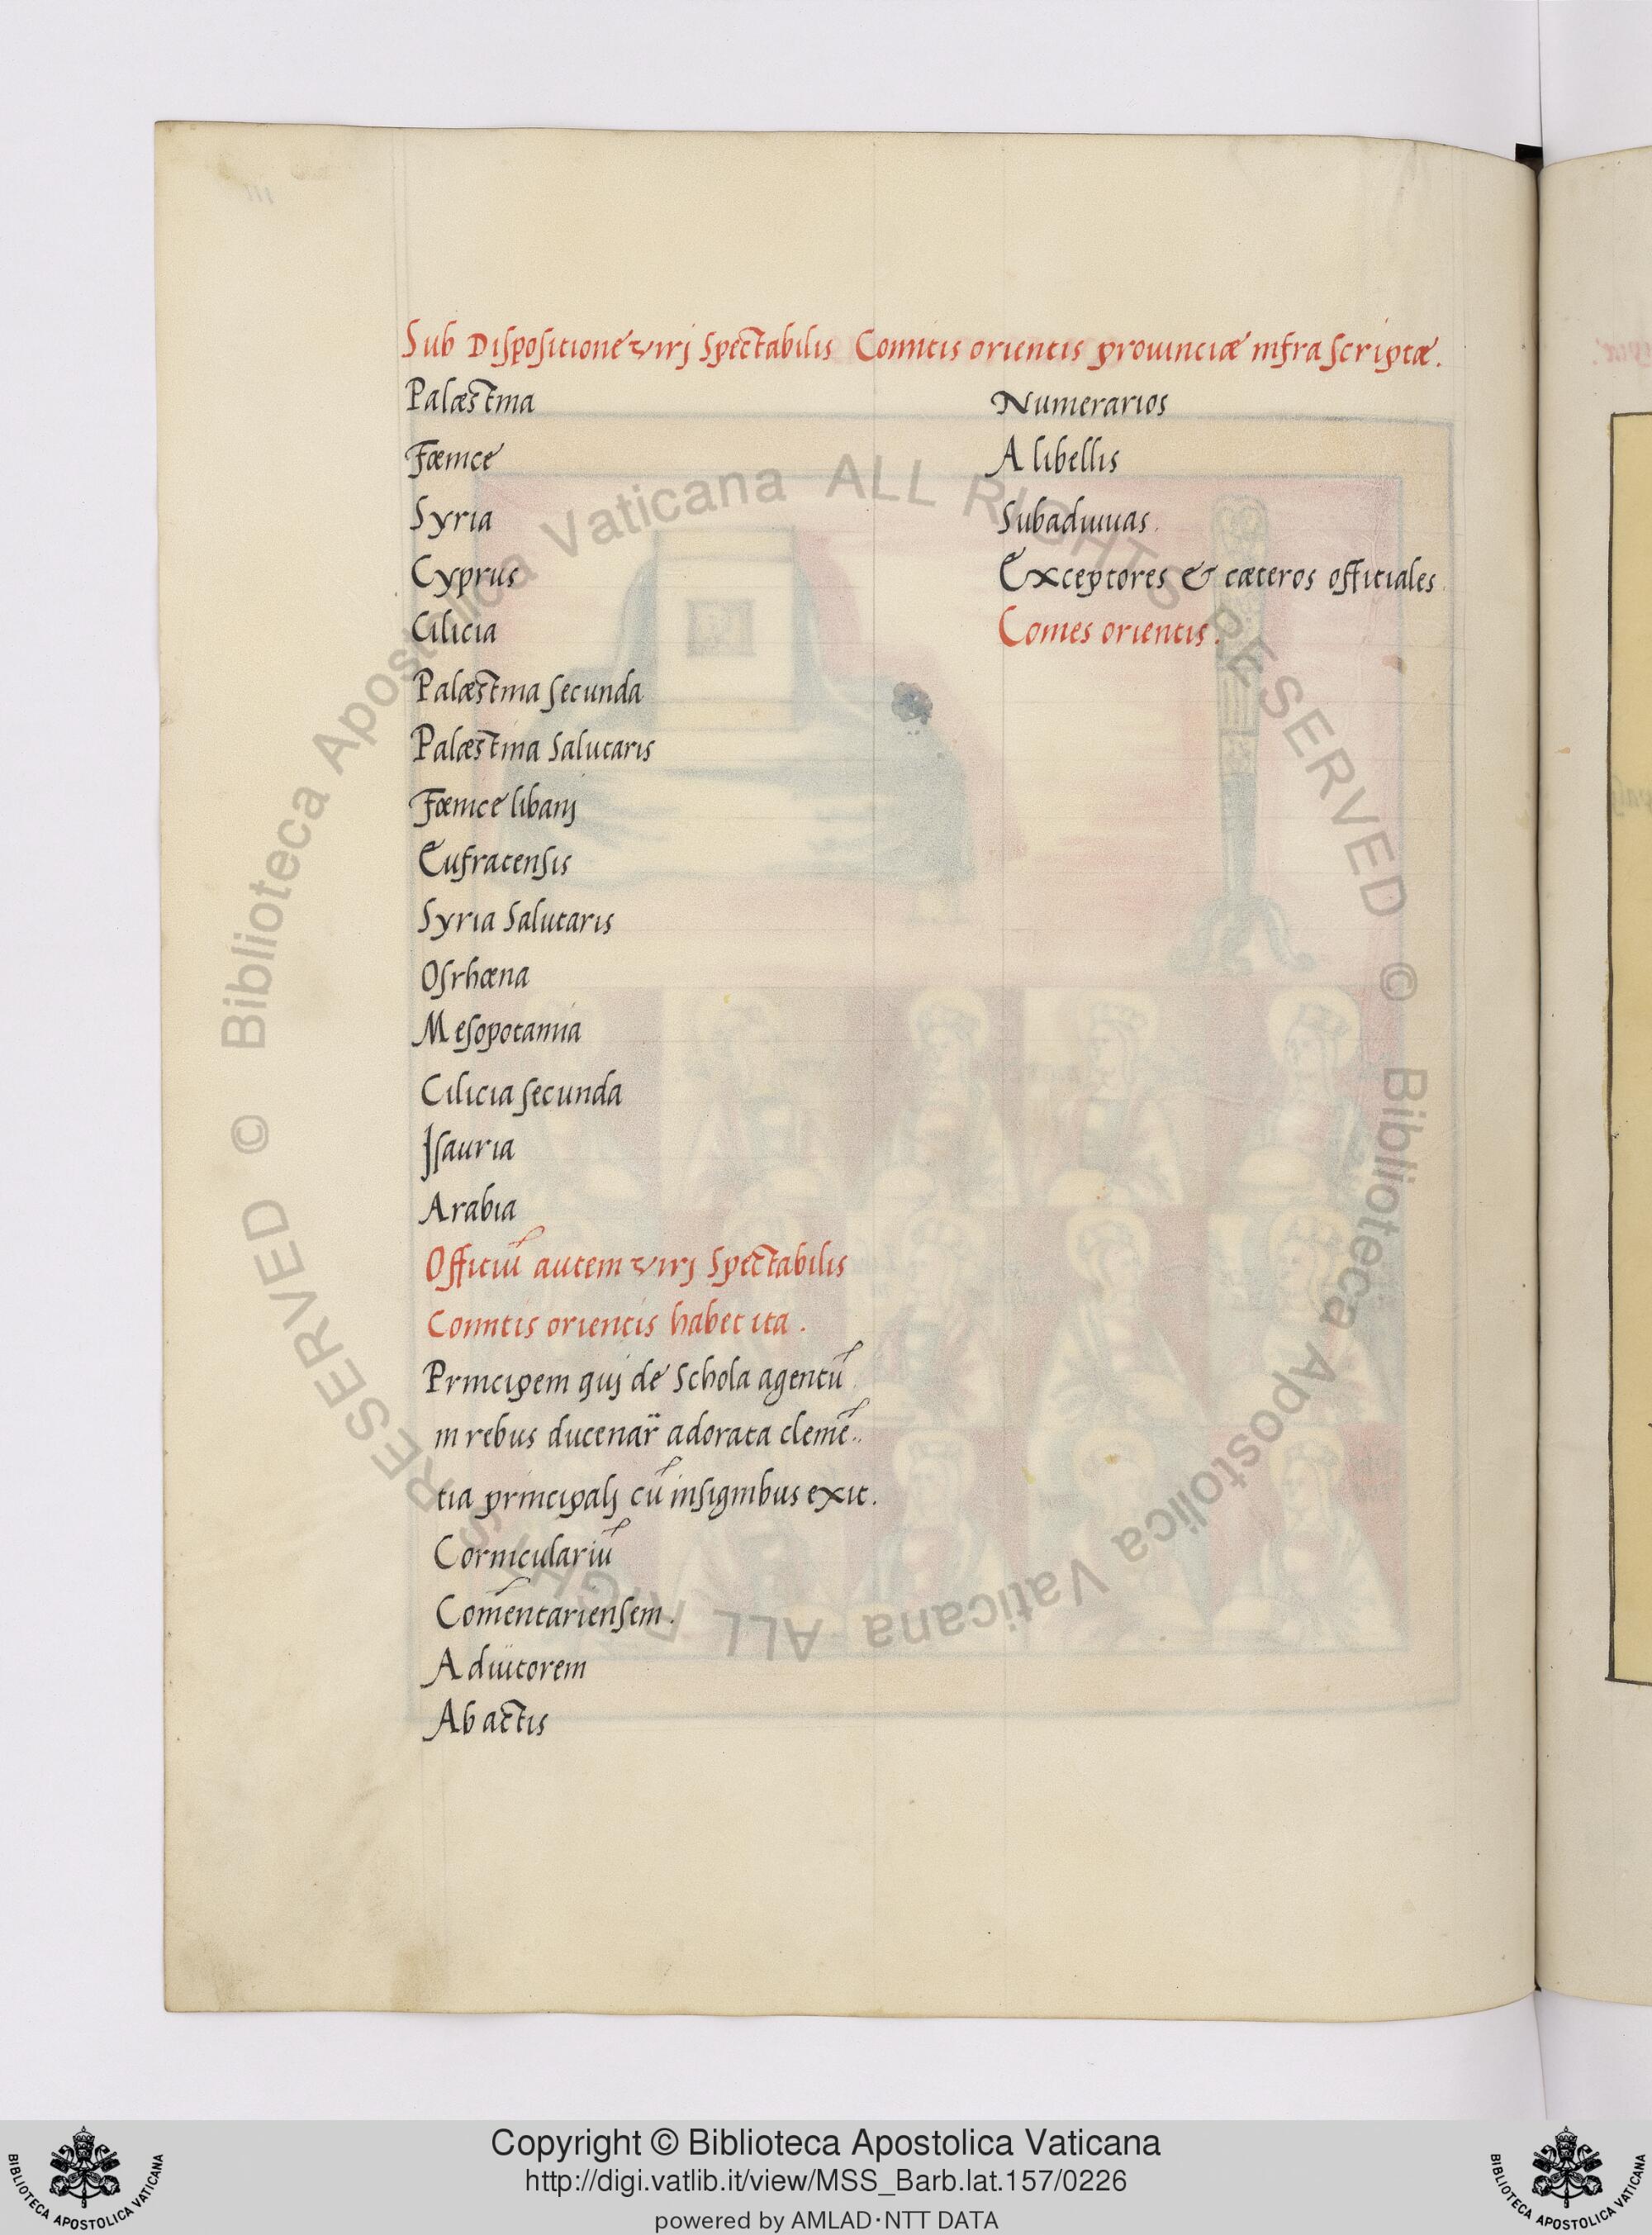 Sub Dispositione virj Spectabilis Comitis orientis prouinciæ infra scriptæ.
Palæstina
Fœnice
Syria
Cyprus
Cilicia
Palæstina secunda
Palæstina Salutaris
Fœnice libanj
Eufratensis
Syria Salutaris
Osrhœna
Mesopotamia
Cilicia secunda
Isauria
Arabia
Officiū autem virj Spectabilis
Comitis orientis habet ita.
Principem quj de Schola agentū
in rebus ducenar̈ adorata clemē..
tia principalj cū insignibus exit.
Corniculariū
Com̄entariensem.
Adiutorem
Ab actis
Numerarios
A libellis
Subadiuuas.
Exceptores & cæteros officiales.
Comes orientis.
© Biblioteca Apostolica Vaticana ALL RIGHTS RESERVED © Biblioteca Apostolica Vaticana ALL RIGHTS RESERVED
Copyright © Biblioteca Apostolica Vaticana
http://digi.vatlib.it/view/MSS_Barb.lat.157/0226
powered by AMLAD·NTT DATA
BIBLIOTECA APOSTOLICA VATICANA
BIBLIOTECA APOSTOLICA VATICANA